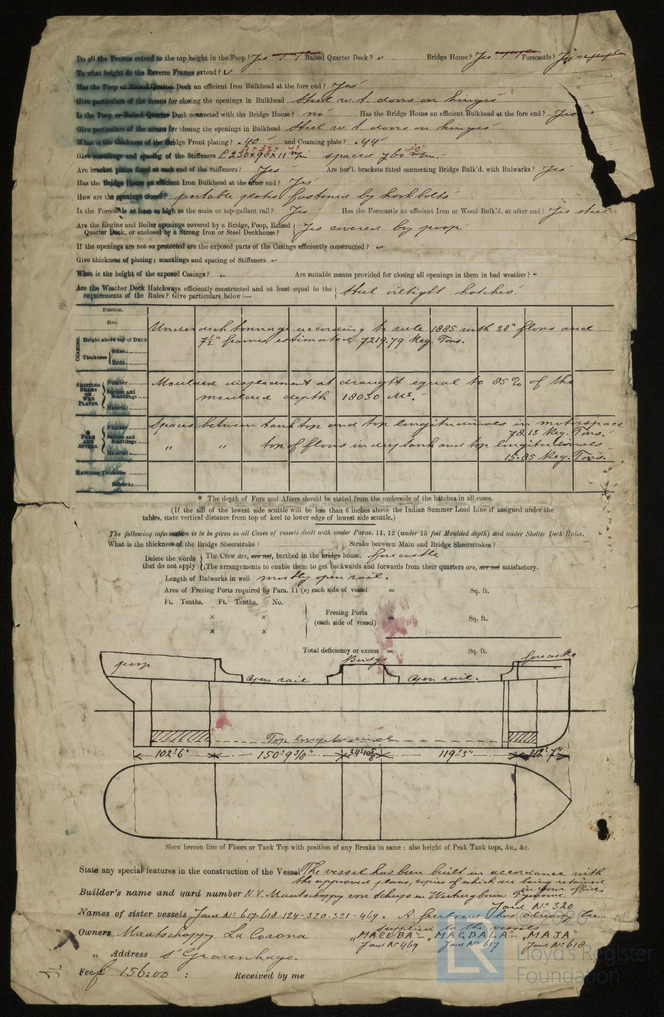 Do all the Frames extend to the top height in the Poop? Yes Raised Quarter Deck? Bridge House? Yes Forecastle? Yes
To what height do the Reverse Frames extend?
Has the Poop or Raised Quarter Deck an efficient Iron Bulkhead at the fore end? Yes
Give particulars of the means for closing the openings in Bulkhead Steel w.t. doors on hinges
Is the Poop or Raised Quarter Deck connected with the Bridge House? no Has the Bridge House an efficient Iron Bulkhead at the fore end? Yes
Give particulars of the means for closing the openings in Bulkhead Steel w.t. doors on hinges
What is the thickness of the Bridge Front plating? .40" and Coaming plate? .44"
Give scantlings and spacing of the Stiffeners 230x90x11 m/m spaced 760 m/m.
Are bracket plates fitted at each end of the Stiffeners? Yes Are hor'l. brackets fitted connecting Bridge Bulk'd. with Bulwarks? Yes
Has the Bridge House an efficient Iron Bulkhead at the after end? Yes
How are the openings closed? portable plates fastened by hookbolts
Is the Forecastle at least as high as the main or top-gallant rail? Yes Has the Forecastle an efficient Iron or Wood Bulk'd. at after end? Yes steel
Are the Engine and Boiler openings covered by a Bridge, Poop, Raised Quarter Deck, or enclosed by a Strong Iron or Steel Deckhouse? Yes covered by poop
If the openings are not so protected are the exposed parts of the Casings efficiently constructed?
Give thickness of plating; scantlings and spacing of Stiffeners
What is the height of the exposed Casings? Are suitable means provided for closing all openings in them in bad weather?
Are the Weather Deck Hatchways efficiently constructed and at least equal to the requirements of the Rules? Give particulars below:— Steel oiltight hatches.
Position.
Size.
COAMING. Height above top of Deck
Thickness Sides.
Ends.
Underdeck tonnage according to rule 1885 with 38" floors and
7½" frames estimated 7219.79 Reg. Tons.
SHIFTING BEAMS OR WEB PLATES. Number
Section and Scantlings
Material
Moulded displacement at draught equal to 85% of the
moulded depth 18030 M³.
* FORE AND AFTERS. Number
Section and Scantlings
Material
Spaces between tank top and top longitudinals in motorspace
78.13 Reg. Tons.
" " top of floors in dry tank and top longitudinals
15.85 Reg. Tons.
HATCHES Thickness
Remarks
* The depth of Fore and Afters should be stated from the underside of the hatches in all cases.
(If the sill of the lowest side scuttle will be less than 6 inches above the Indian Summer Load Line if assigned under the
tables, state vertical distance from top of keel to lower edge of lowest side scuttle.)
The following information is to be given in all Cases of vessels dealt with under Paras. 11, 12 (under 15 feet Moulded depth) and under Shelter Deck Rules.
What is the thickness of the Bridge Sheerstrake? Strake between Main and Bridge Sheerstrakes?
Delete the words that do not apply
The Crew are, are not, berthed in the bridge house. forecastle
The arrangements to enable them to get backwards and forwards from their quarters are, are not satisfactory.
Length of Bulwarks in well mostly open rail.
Area of Freeing Ports required by Para. 11 (e) each side of vessel = Sq. ft.
Ft. Tenths. Ft. Tenths. No.
× × Freeing Ports (each side of vessel) = Sq. ft.
Total deficiency or excess = Sq. ft.
poop Open rail Bridge Open rail. forecastle
Top longitudinal
102'6" 150'9 3/8" 119'3"
Show hereon line of Floors or Tank Top with position of any Breaks in same; also height of Peak Tank tops, &c., &c.
State any special features in the construction of the Vessel The vessel has been built in accordance with
the approved plans, copies of which are being retained
in your office.
Builder's name and yard number N.V. Maatschappy voor Scheeps en Werktuigbouw Fyenoord.
Yard No 320
Names of sister vessels Yard Nos: 617-618-124-320-321-469. A freeboard has already been
supplied to the vessels
Owners Maatschappy La Corona "MACUBA" "MAGDALA" "MAJA"
Yard No 469 Yard No 617 Yard No 618
" Address s'Gravenhage.
Fee f 156:00 : Received by me
LR
Lloyd's Register
Foundation